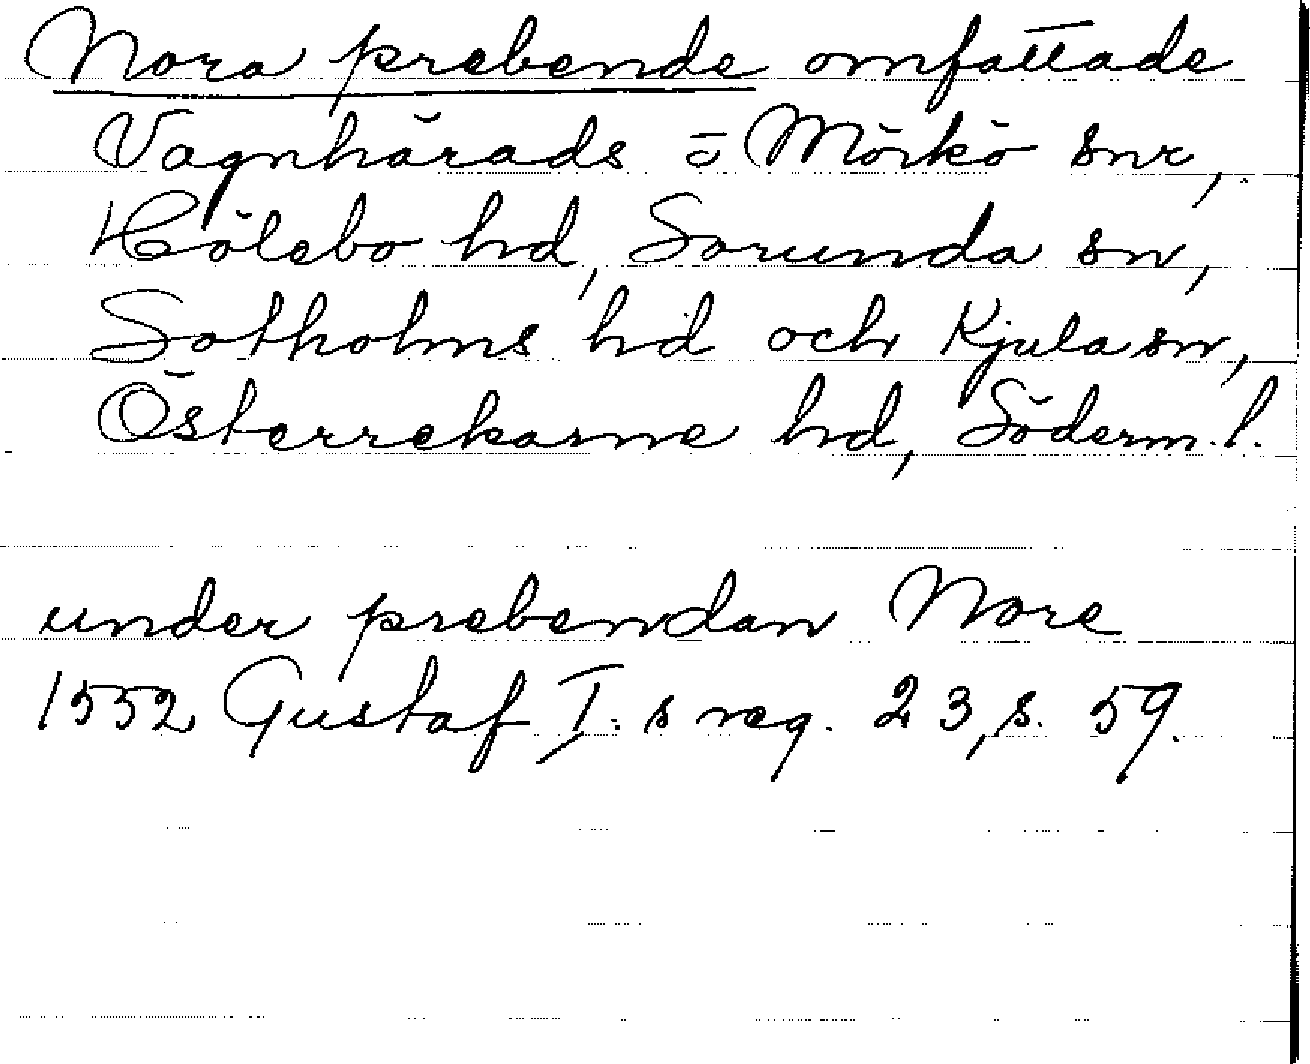 Nora prebende omfattade
Vagnhärads o Mörkö snr,
Hölebo hd, Sorunda sn,
Sotholms hd och Kjula sn,
Österrekarne hd, Söderm. l.
under prebendan Nore
1552 Gustaf I:s reg. 23, s. 59.